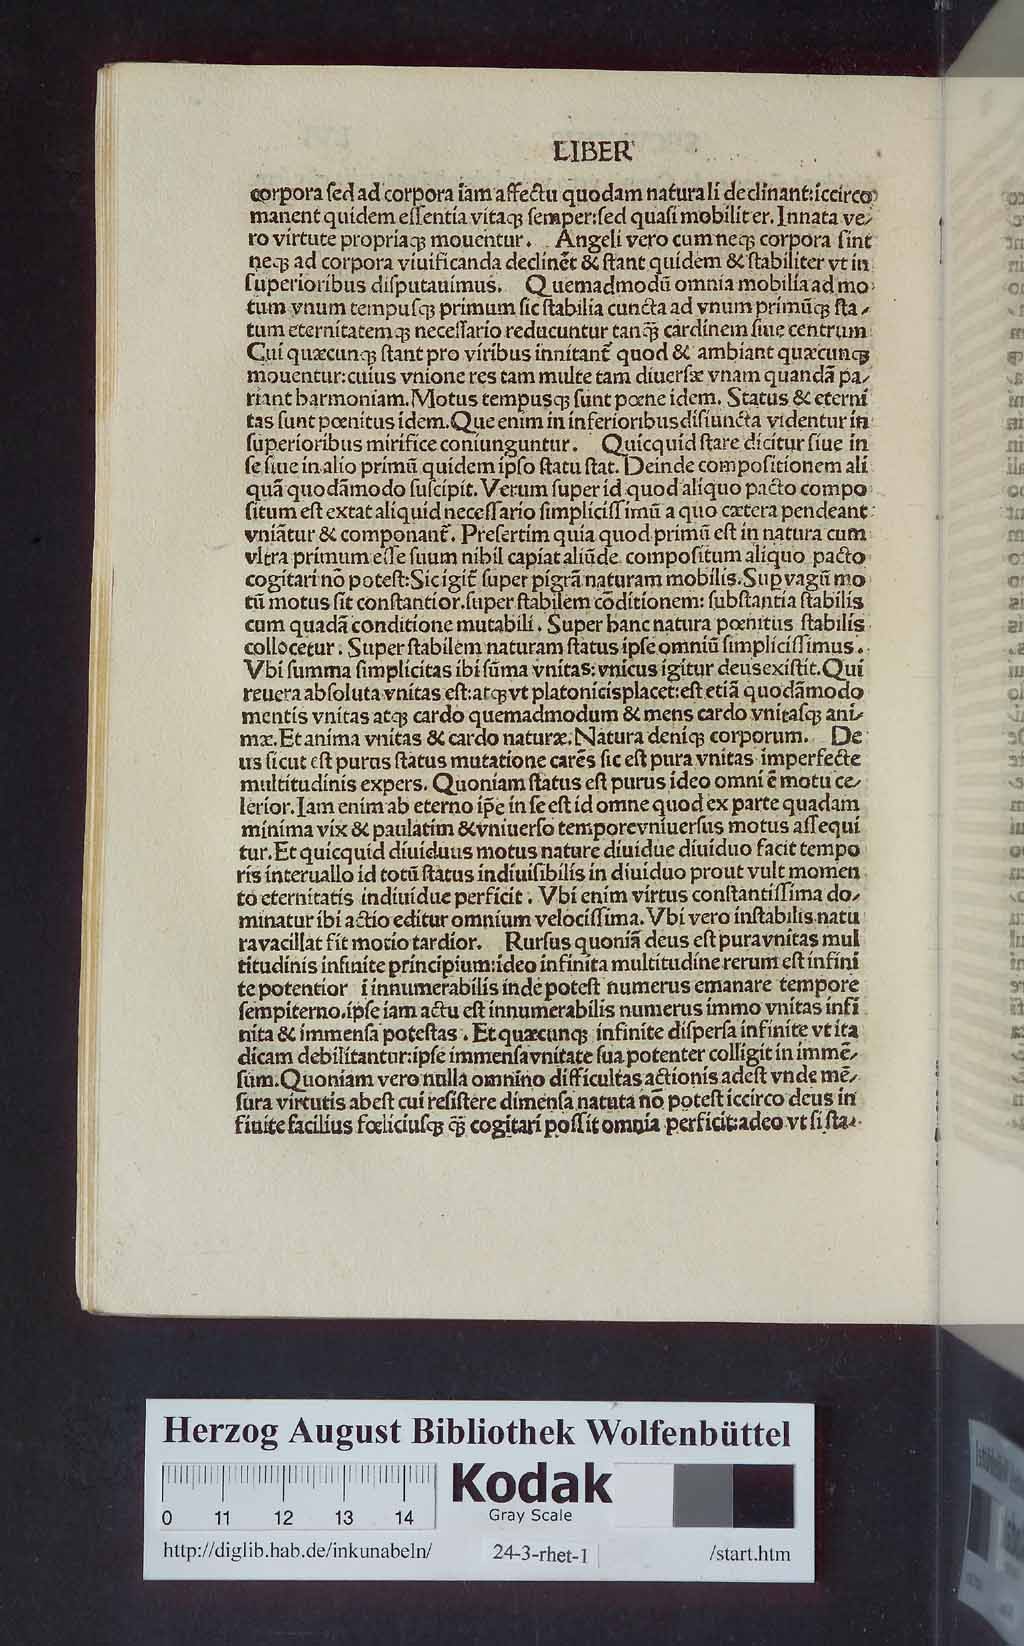 LIBER
corpora ſed ad corpora iam affectu quodam naturali declinant:iccirco
manent quidem eſſentia vitaqꝫ ſemper:ſed quaſi mobiliter. Innata ve/
ro virtute propriaqꝫ mouentur. Angeli vero cum neqꝫ corpora ſint
neqꝫ ad corpora viuificanda declinēt & ſtant quidem & ſtabiliter vt in
ſuperioribus diſputauimus. Quemadmodū omnia mobilia ad mo
tum vnum tempuſqꝫ primum ſic ſtabilia cuncta ad vnum primūqꝫ ſta/
tum eternitatemqꝫ neceſſario reducuntur tanqꝫ̄ cardinem ſiue centrum
Cui quæcunqꝫ ſtant pro viribus innitant̄ quod & ambiant quæcunqꝫ
mouentur:cuius vnione res tam multe tam diuerſæ vnam quandā pa/
riant harmoniam. Motus tempusqꝫ ſunt pœne idem. Status & eterni
tas ſunt pœnitus idem. Que enim in inferioribus diſiuncta videntur in
ſuperioribus mirifice coniunguntur. Quicquid ſtare dicitur ſiue in
ſe ſiue in alio primū quidem ipſo ſtatu ſtat. Deinde compoſitionem ali
quā quodāmodo ſuſcipit. Verum ſuper id quod aliquo pacto compo
ſitum eſt extat aliquid neceſſario ſimpliciſſimū a quo cætera pendeant
vniātur & componant̄. Preſertim quia quod primū eſt in natura cum
vltra primum eſſe ſuum nihil capiat aliūde compoſitum aliquo pacto
cogitari nō poteſt:Sic igit̄ ſuper pigrā naturam mobilis. Suꝑ vagū mo
tū motus ſit conſtantior. ſuper ſtabilem cōditionem: ſubſtantia ſtabilis
cum quadā conditione mutabili. Super hanc natura pœnitus ſtabilis
collocetur. Super ſtabilem naturam ſtatus ipſe omniū ſimpliciſſimus.
Vbi ſumma ſimplicitas ibi ſūma vnitas: vnicus igitur deus exiſtit. Qui
reuera abſoluta vnitas eſt:atqꝫ vt platonicis placet:eſt etiā quodāmodo
mentis vnitas atqꝫ cardo quemadmodum & mens cardo vnitaſqꝫ ani/
mæ. Et anima vnitas & cardo naturæ. Natura deniqꝫ corporum. De
us ſicut eſt purus ſtatus mutatione carēs ſic eſt pura vnitas imperfecte
multitudinis expers. Quoniam ſtatus eſt purus ideo omni ē motu ce/
lerior. Iam enim ab eterno ip̄e in ſe eſt id omne quod ex parte quadam
minima vix & paulatim & vniuerſo tempore vniuerſus motus aſſequi
tur. Et quicquid diuiduus motus nature diuidue diuiduo facit tempo
ris interuallo id totū ſtatus indiuiſibilis in diuiduo prout vult momen
to eternitatis indiuidue perficit. Vbi enim virtus conſtantiſſima do/
minatur ibi actio editur omnium velociſſima. Vbi vero inſtabilis natu
ra vacillat fit motio tardior. Rurſus quoniā deus eſt pura vnitas mul
titudinis infinite principium:ideo infinita multitudine rerum eſt infini
te potentior i innumerabilis inde poteſt numerus emanare tempore
ſempiterno. ipſe iam actu eſt innumerabilis numerus immo vnitas infi
nita & immenſa poteſtas. Et quæcunqꝫ infinite diſperſa infinite vt ita
dicam debilitantur:ipſe immenſa vnitate ſua potenter colligit in immē/
ſum. Quoniam vero nulla omnino difficultas actionis adeſt vnde mē/
ſura virtutis abeſt cui reſiſtere dimenſa natura nō poteſt iccirco deus in
finite facilius fœliciuſqꝫ qꝫ̄ cogitari poſſit omnia perficit:adeo vt ſi ſta/
Herzog August Bibliothek Wolfenbüttel
Kodak
Gray Scale
0 11 12 13 14
http://diglib.hab.de/inkunabeln/ 24-3-rhet-1 /start.htm